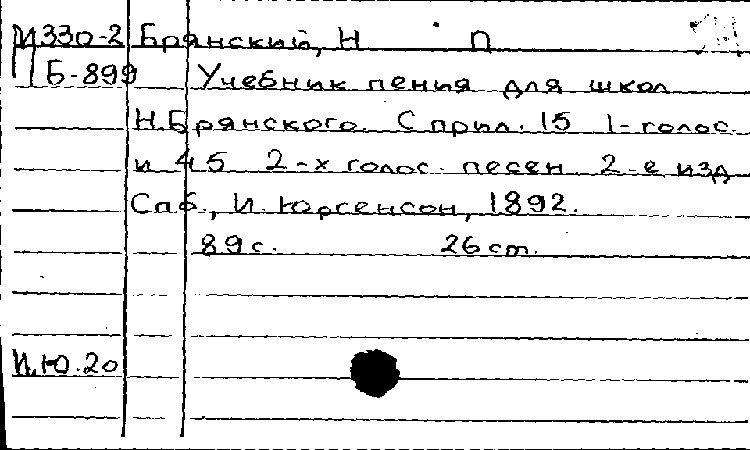 И330-2 Брянский, Н П
Б-899 Учебник пения для школ
Н.Брянского. С прил. 15 1-голос.
и 45 2-х голос. песен 2-е изд
Спб., И. Юргенсон, 1892.
89с. 26ст.
И.Ю.20